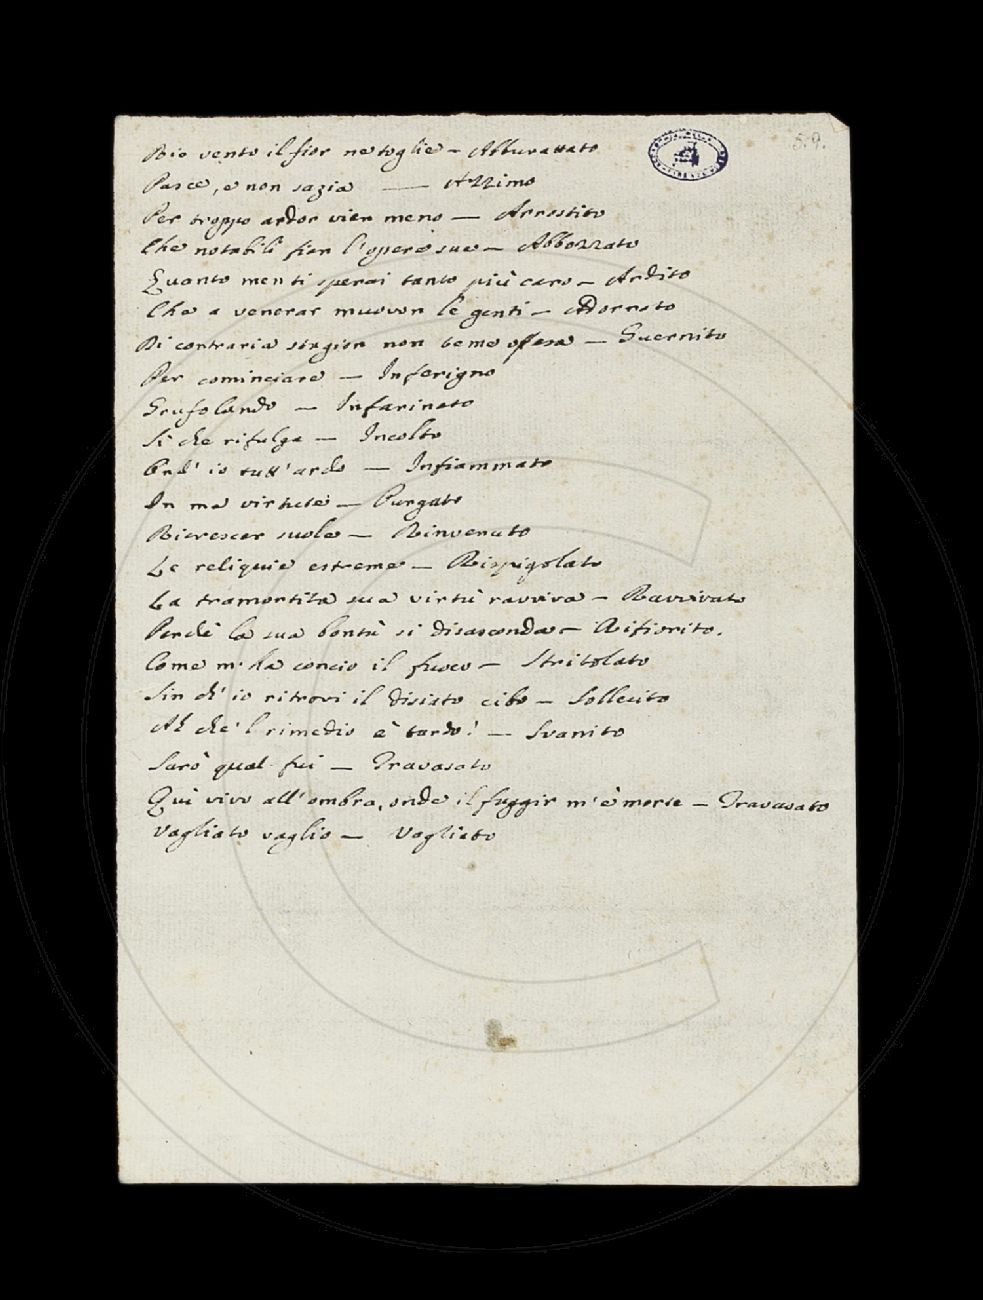 Rio vento il fior ne toglie – Abburattato
5.9.
Pasce, e non sazia — Azzimo
Per troppo ardor vien meno — Arrostito
Che notabili fier l'opere sue – Abbozzato
Quanto men ti sperai tanto più caro – Ardito
Che a venerar muovon le genti – Adorrato
Di contraria stagion non teme offesa — Guernito
Per cominciare — Inferigno
Grufolando — Infarinato
Si che rifulga — Incolto
Ond' io tutt' ardo — Infiammato
In me virtute — Purgato
Ricrescer suole — Rinvenuto
Le reliquie estreme — Rispigolato
La tramortita sua virtù ravviva – Ravvivato
Perchè la sua bontù si disasconda – Rifiorito.
Come m' ha concio il fuoco – Stritolato
Sin ch' io ritrovi il disiato cibo – Sollecito
Ah che 'l rimedio è tardo! — Svanito
Sarò qual fui — Travasato
Qui vivo all' ombra, onde il fuggir m' è morte – Travasato
Vagliato vaglio — Vagliato